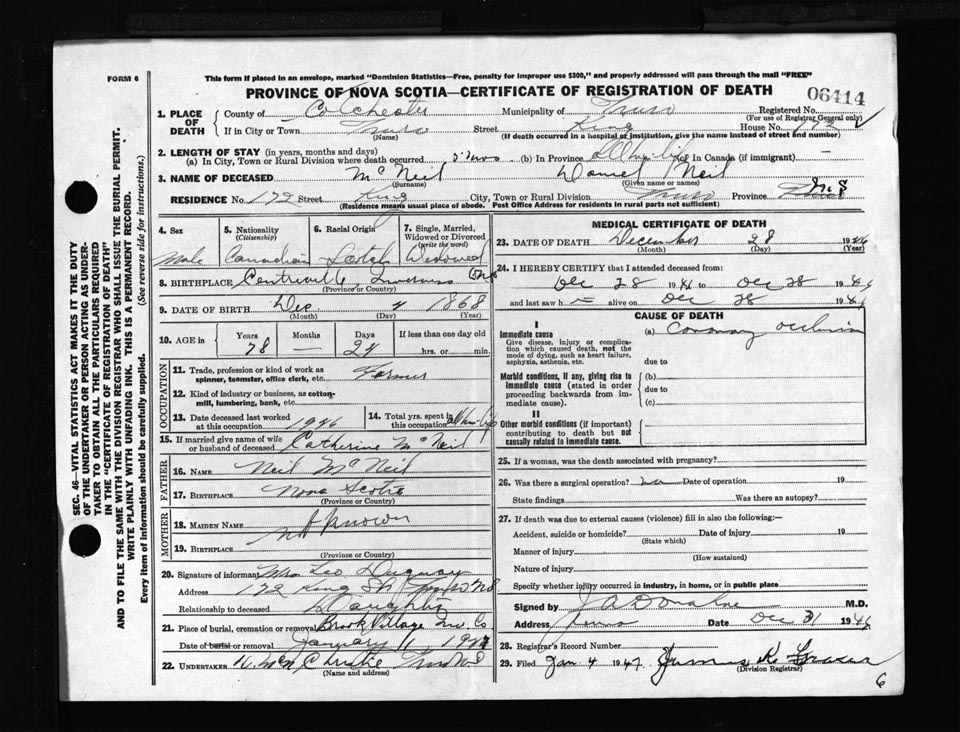 FORM 6
This form if placed in an envelope, marked "Dominion Statistics—Free, penalty for improper use $300," and properly addressed will pass through the mail "FREE"
PROVINCE OF NOVA SCOTIA—CERTIFICATE OF REGISTRATION OF DEATH
06414
1. PLACE OF DEATH
County of Colchester Municipality of Truro Registered No.
(For use of Registrar General only)
If in City or Town Truro Street King House No. 172
(Name) (If death occurred in a hospital of institution, give the name instead of street and number)
2. LENGTH OF STAY (in years, months and days)
(a) In City, Town or Rural Division where death occurred 5 mos (b) In Province All his life (c) In Canada (if immigrant) —
3. NAME OF DECEASED McNeil Daniel Neil
(Surname) (Given name or names)
RESIDENCE No. 172 Street King City, Town or Rural Division Truro Province N.S
(Residence means usual place of abode. Post Office Address for residents in rural parts not sufficient)
4. Sex
Male
5. Nationality
(Citizenship)
Canadian
6. Racial Origin
Scotch
7. Single, Married, Widowed or Divorced
(write the word)
Widowed
8. BIRTHPLACE Centreville, Inverness
(Province or Country)
9. DATE OF BIRTH Dec. 4 1868
(Month) (Day) (Year)
10. AGE in Years Months Days If less than one day old
78 24 hrs. or min.
OCCUPATION
11. Trade, profession or kind of work as spinner, teamster, office clerk, etc. Farmer
12. Kind of industry or business, as cotton-mill, lumbering, bank, etc.
13. Date deceased last worked at this occupation 1946
14. Total yrs. spent in occupation All his life
15. If married give name of wife or husband of deceased Catherine McNeil
FATHER
16. NAME Neil McNeil
17. BIRTHPLACE Nova Scotia
(Province or Country)
MOTHER
18. MAIDEN NAME
not known
19. BIRTHPLACE
(Province or Country)
20. Signature of informant Mrs Leo Duguay
Address 172 King St Truro NS
Relationship to deceased Daughter
21. Place of burial, cremation or removal Brook Village Inv. Co.
Date of burial or removal January 1 1947
22. UNDERTAKER Christie Truro NS
(Name and address)
MEDICAL CERTIFICATE OF DEATH
23. DATE OF DEATH December 28 1946
(Month) (Day) (Year)
24. I HEREBY CERTIFY that I attended deceased from:
Dec 28 1946 to Dec 28 1946
and last saw h alive on Dec 28 1946
CAUSE OF DEATH
I
Immediate cause
Give disease, injury or complication which caused death, not the mode of dying, such as heart failure, asphyxia, asthenia, etc.
(a) Coronary occlusion
due to
Morbid conditions, if any, giving rise to immediate cause (stated in order proceeding backwards from immediate cause).
(b)
due to
(c)
II
Other morbid conditions (if important) contributing to death but not causally related to immediate cause.
25. If a woman, was the death associated with pregnancy?
26. Was there a surgical operation? no Date of operation 19
State findings Was there an autopsy?
27. If death was due to external causes (violence) fill in also the following:—
Accident, suicide or homicide? Date of injury 19
(State which)
Manner of injury
(How sustained)
Nature of injury
Specify whether injury occurred in industry, in home, or in public place
Signed by J A Donahoe M.D.
Address Truro Date Dec 31 1946
28. Registrar's Record Number
29. Filed Jan 4 1947 James K. Fraser
(Division Registrar)
6
SEC. 46—VITAL STATISTICS ACT MAKES IT THE DUTY
OF THE UNDERTAKER OR PERSON ACTING AS UNDER-
TAKER TO OBTAIN ALL THE PARTICULARS REQUIRED
IN THE "CERTIFICATE OF REGISTRATION OF DEATH"
AND TO FILE THE SAME WITH THE DIVISION REGISTRAR WHO SHALL ISSUE THE BURIAL PERMIT.
WRITE PLAINLY WITH UNFADING INK. THIS IS A PERMANENT RECORD.
Every item of information should be carefully supplied. (See reverse side for instructions.)